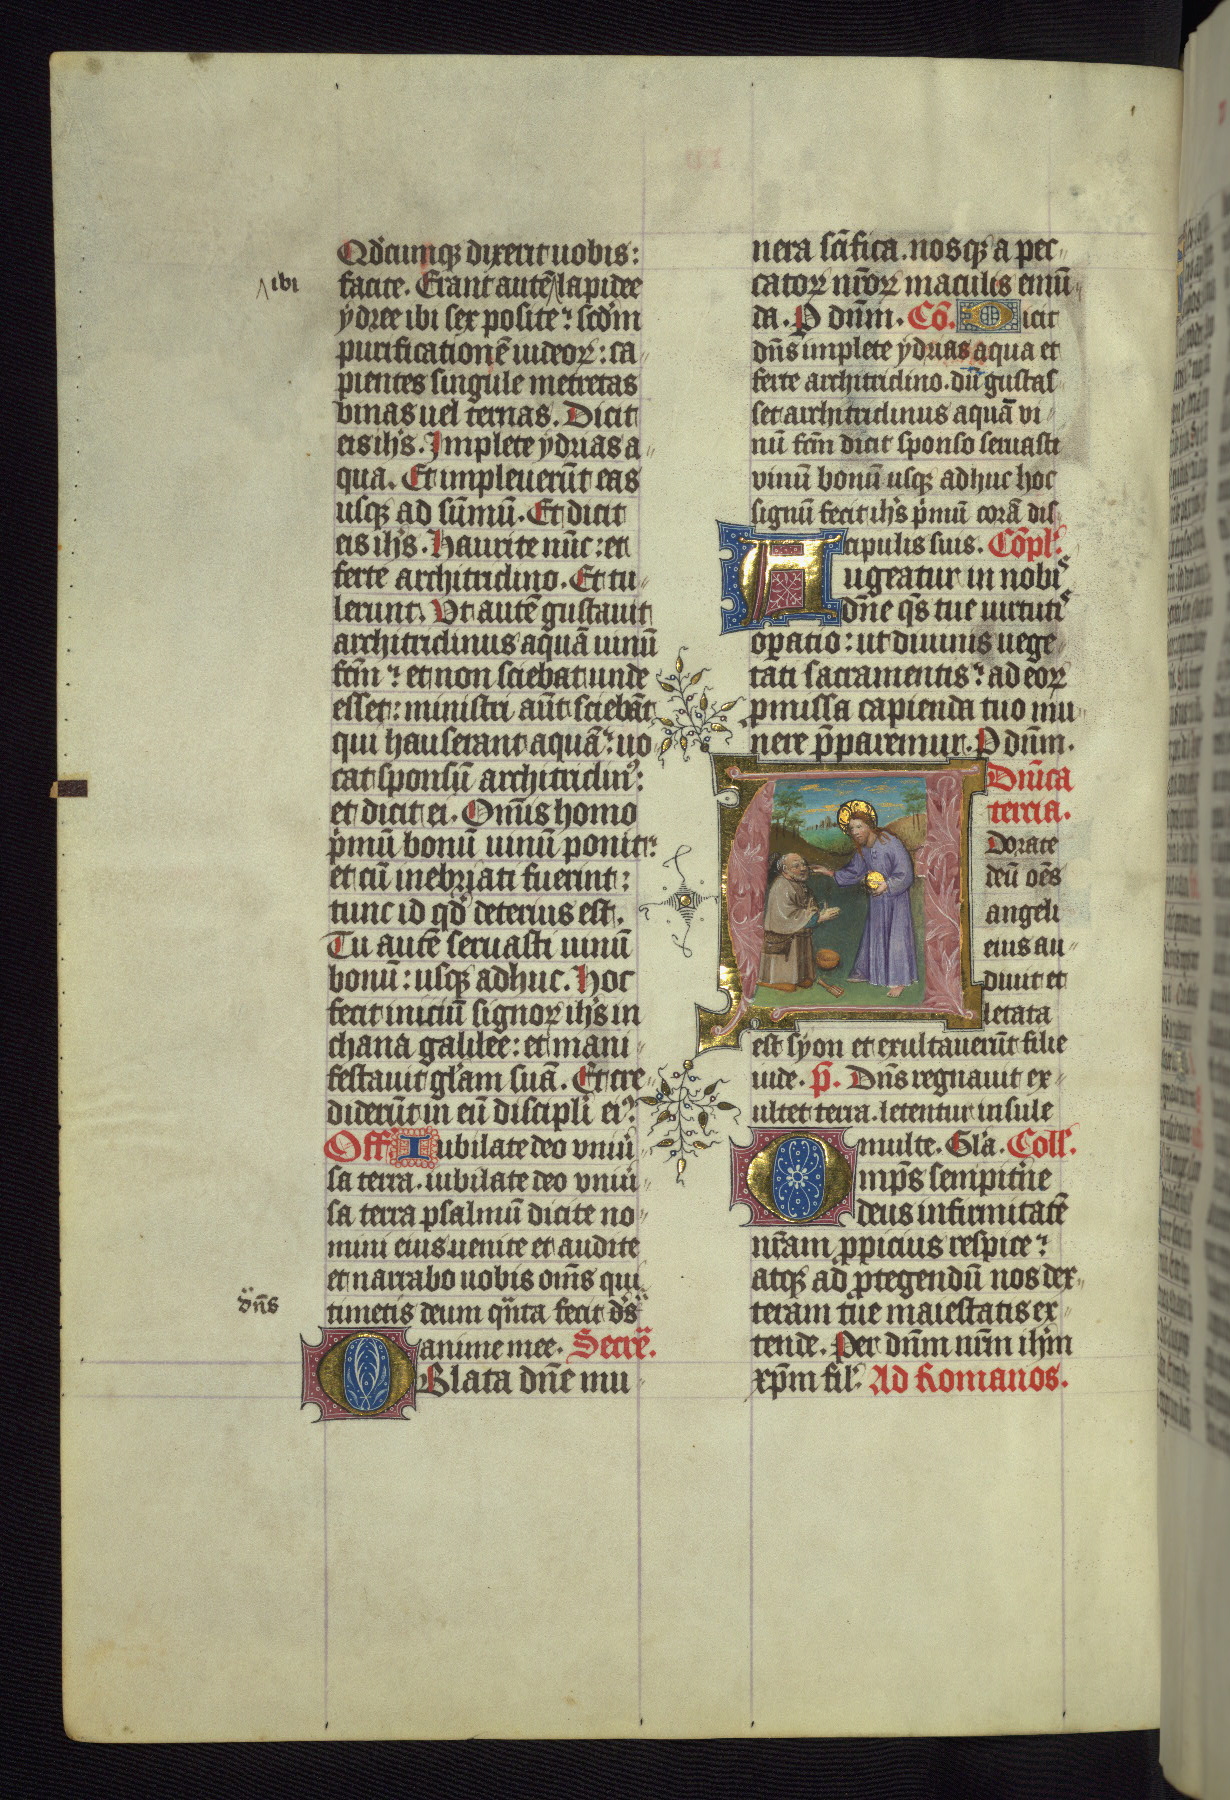 Qd̄cumqꝫ dixerit uobis:
facite. Erant autē lapidee
ibi
ydree ibi sex posite: scd̄m
purificationē iudeoꝝ: ca
pientes singule metretas
binas uel ternas. Dicit
eis ihs̄. Implete ydrias a
qua. Et impleuerūt eas
usqꝫ ad sūmū. Et dicit
eis ihs̄. Haurite nūc: et
ferte architriclino. Et tu
lerunt. Vt autē gustauit
architriclinus aquā uinū
fcm̄: et non sciebat unde
esset: ministri aūt sciebāt
qui hauserant aquā: uo
cat sponsū architriclinꝰ:
et dicit ei. Omīs homo
p̄mū bonū uinū ponit:
et cū inebriati fuerint:
tunc id qd̄ deterius est.
Tu autē seruasti uinū
bonū: usqꝫ adhuc. Hoc
fecit iniciū signoꝝ ihs̄ in
chana galilee: et mani
festauit glām suā. Et cre
diderūt in eū discipli eiꝰ.
Off. Iubilate deo vniu̾
sa terra. iubilate deo vniu̾
sa terra psalmū dicite no
mini eius uenite et audite
et narrabo uobis om̄s qui
timetis deum qn̄ta fecit ds̄
dn̄s
anime mee. Secre̾.
OBlata dn̄e mu
nera sc̄ifica. nosqꝫ a pec
catoꝝ nr̄oꝝ maculis emū
da. P dn̄m. Cō. Dicit
dn̄s implete ydrias aqua et
ferte architriclino. dū gustas
set architriclinus aquā vi
nū fcm̄ dicit sponso seruasti
vinū bonū usqꝫ adhuc hoc
signū fecit ihs̄ p̄mū corā dis
cipulis suis. Cōpl̄.
Augeatur in nobis
dn̄e qs̄ tue uirtutis
oꝑatio: ut diuinis uege
tati sacramentis: ad eoꝝ
ꝓmissa capienda tuo mu
nere p̄paremur. P dn̄m.
Dn̄ica
tercia.
Adorate
deū oēs
angeli
eius au
diuit et
letata
est syon et exultauerūt filie
iude. p̄. Dn̄s regnauit ex
ultet terra. letentur insule
multe. Glā. Coll̾.
Omps̄ sempit̾ne
deus infirmitatē
nr̄am ꝓpicius respice:
atqꝫ ad ꝓtegendū nos dex
teram tue maiestatis ex
tende. Per dn̄m nr̄m ihm̄
xpm̄ fil̾. Ad Romanos.